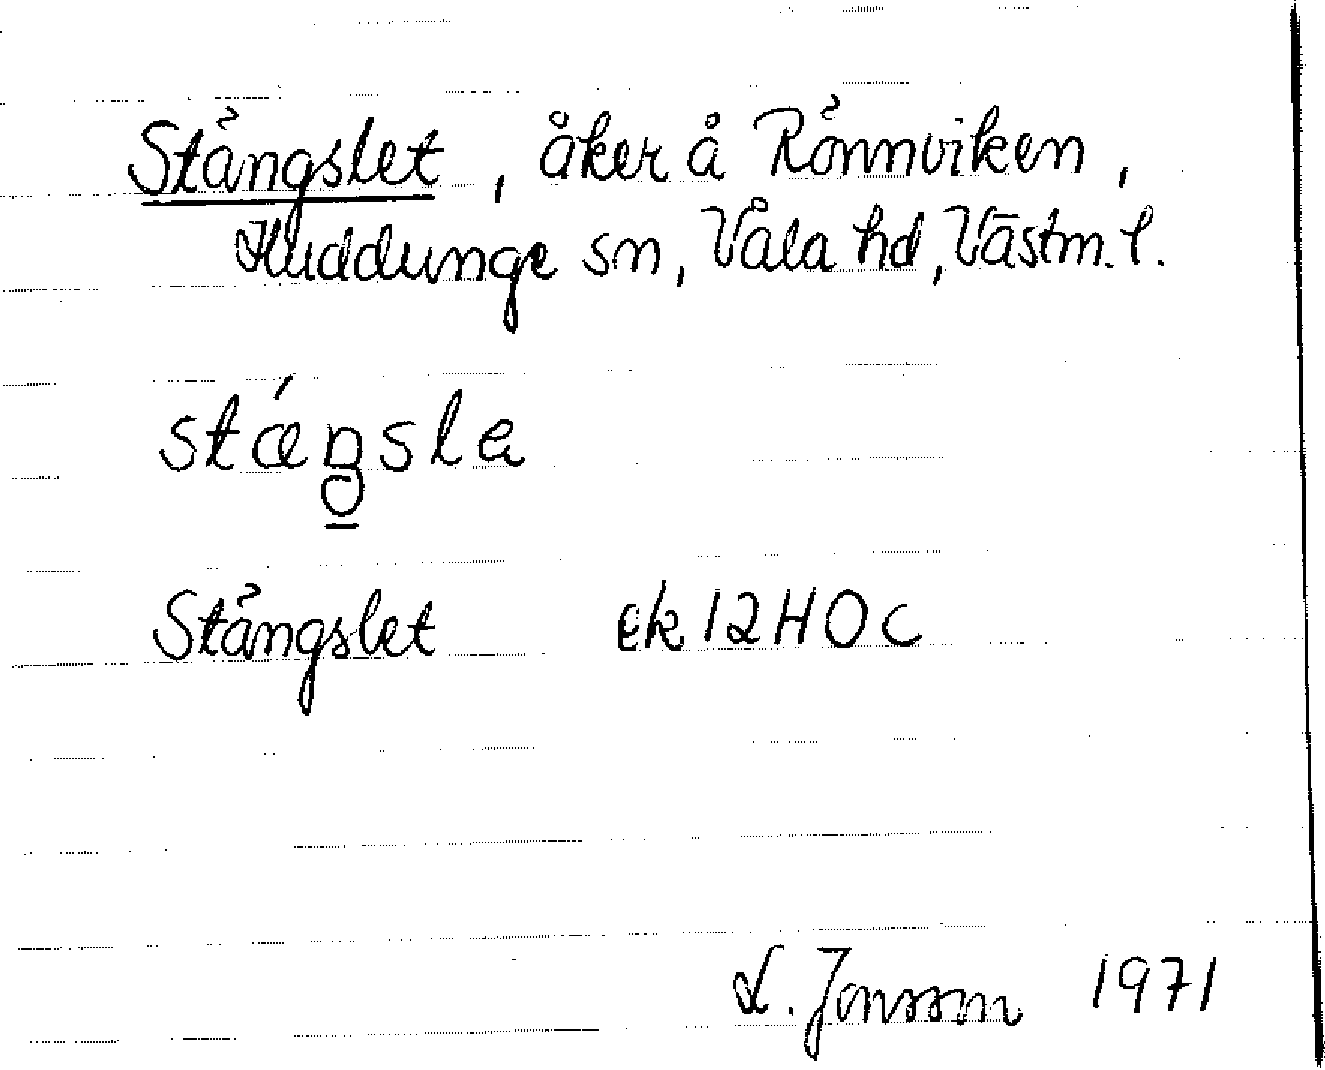 Stängslet, åker å Rönnviken,
Huddunge sn, Våla hd, Västm. l.
stæŋsla
Stängslet ek 12H0c
L. Jonsson 1971